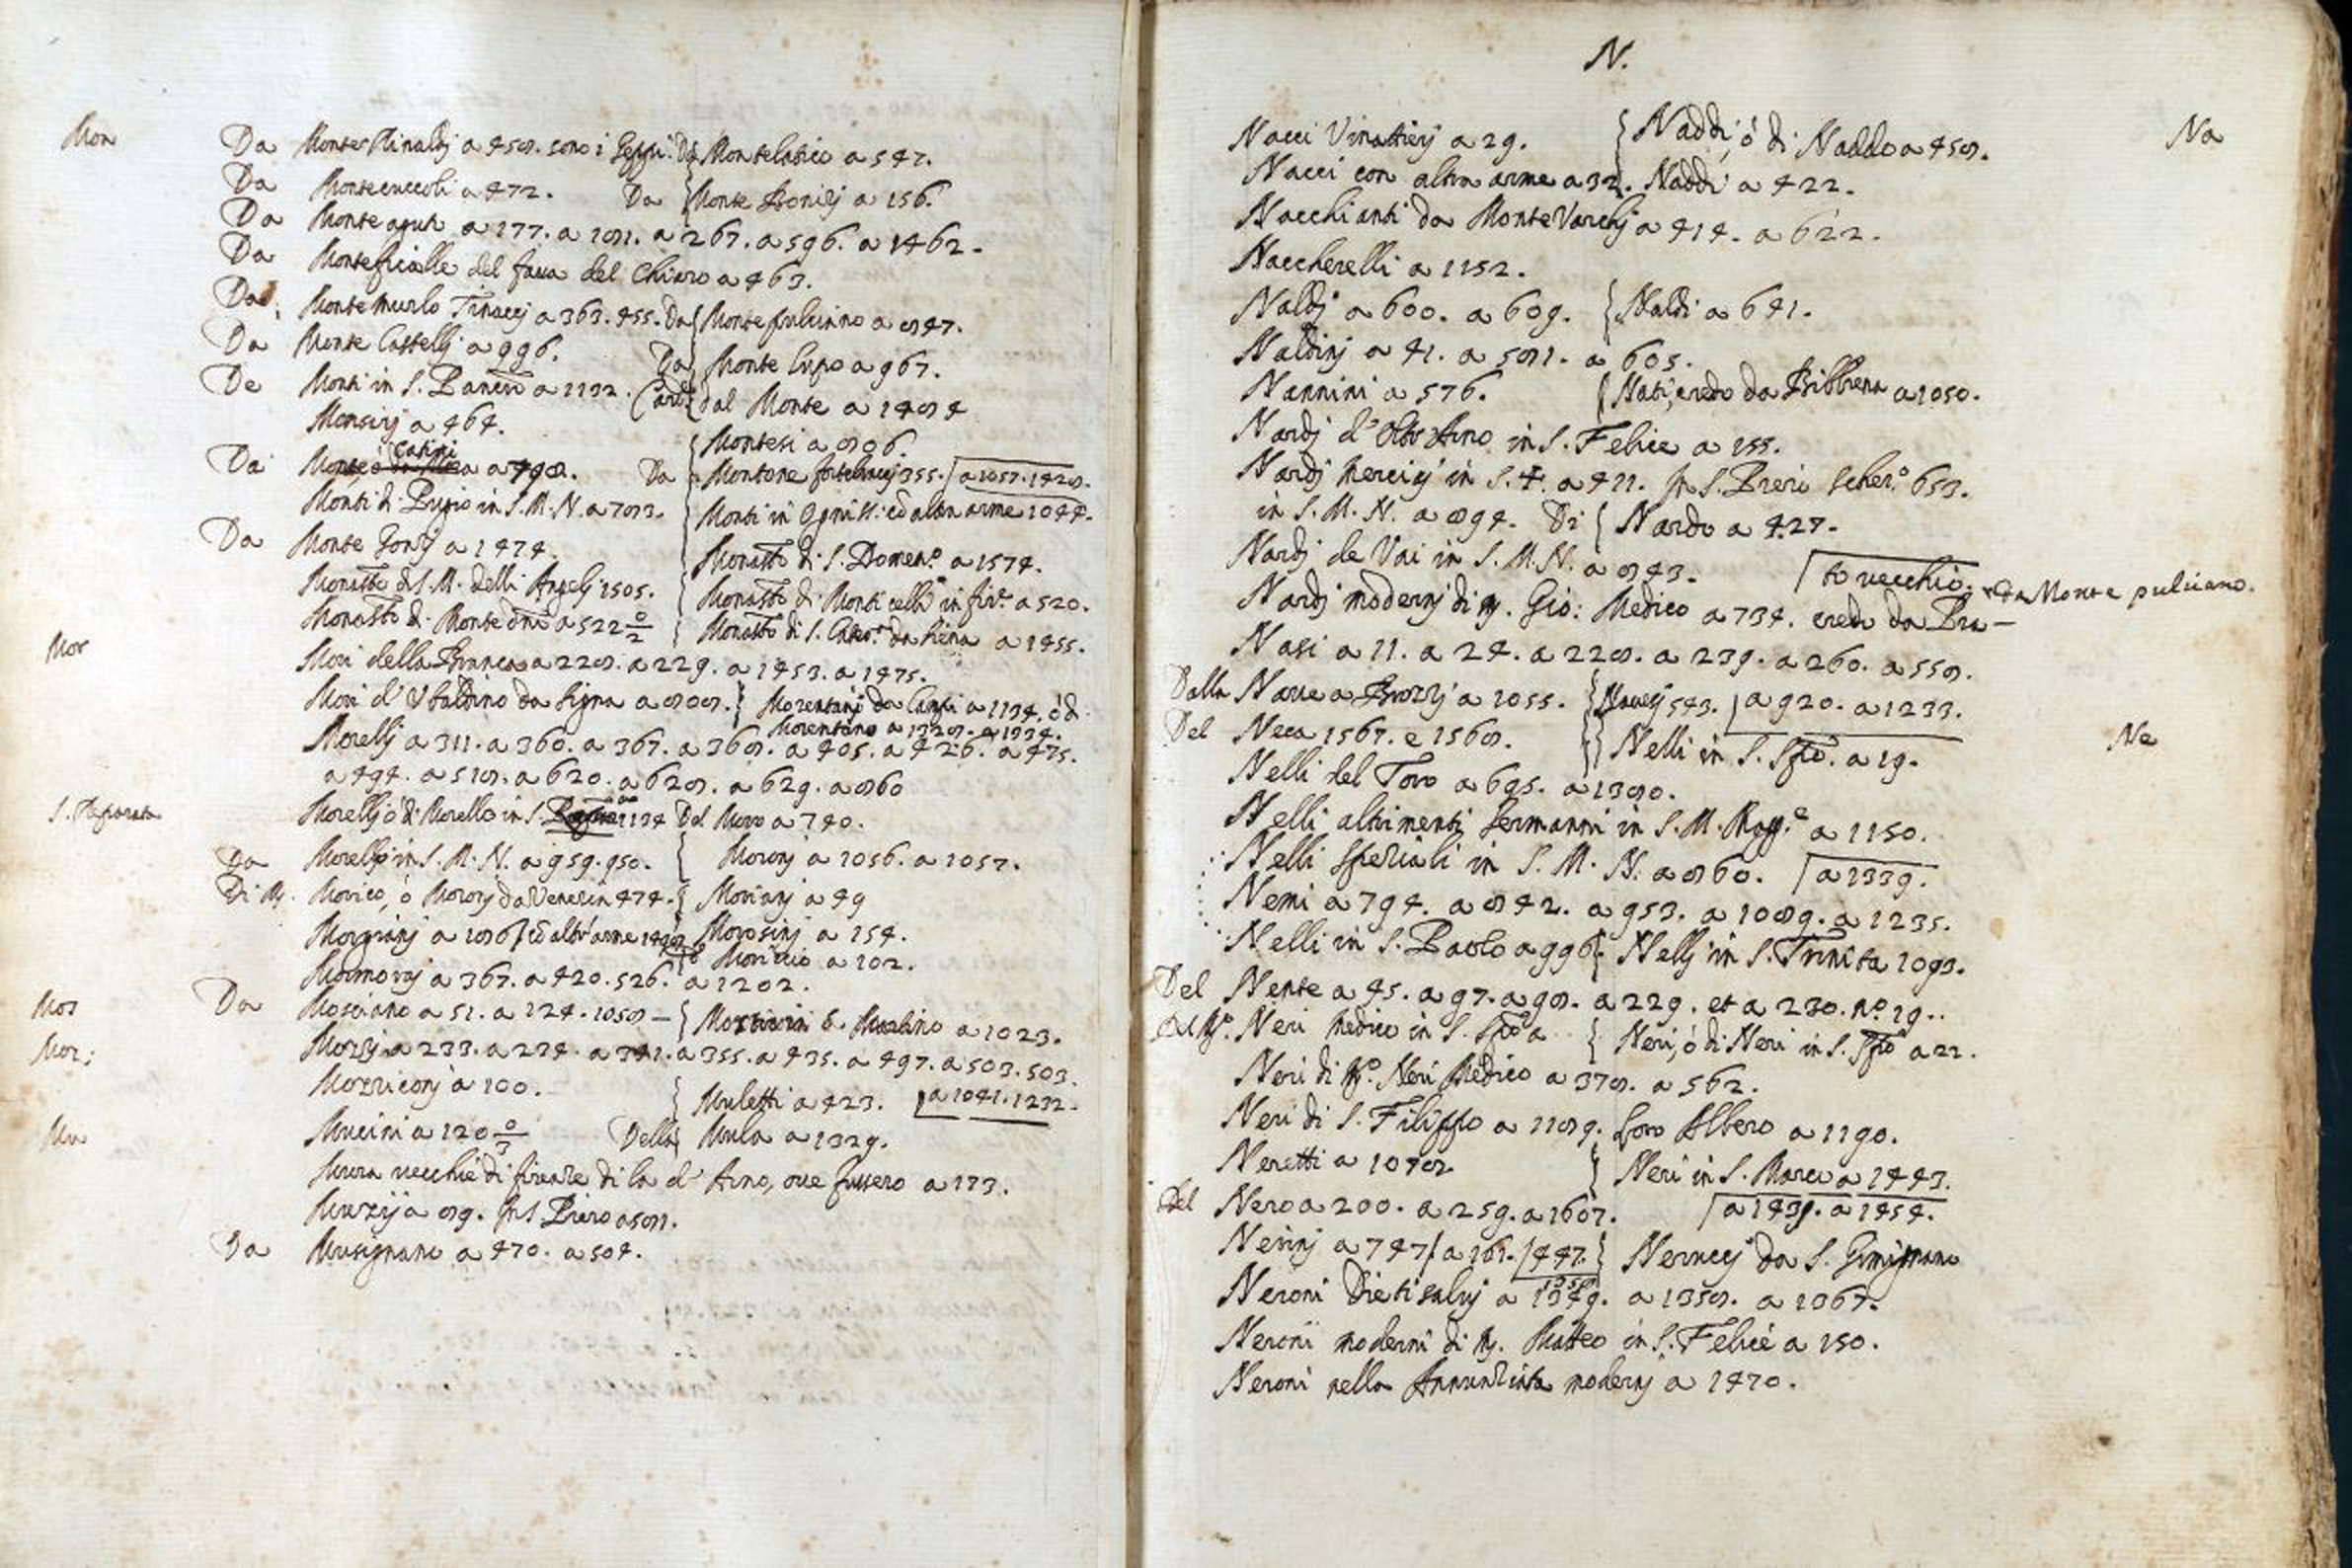 Mon
Da Monte Rinaldj a 458. sono i Da Montelatico a 547.
Da Montecuccoli a 472. Da Monte Bonizj a 156.
Da Monte aguti a 177. a 181. a 267. a 596. a 1462.
Da Monteficalle del fava del Chiaro a 463.
Da Monte murlo Tinaccj a 363. 455. Da Monte pulciano a 847.
Da Monte Castellj a 996. Da Monte lupo a 967.
De Monti in S. Pancrº a 1132. Card. dal Monte a 1484
Monsirj a 464. Montesi a 806.
Da Monte Catini a 798. Da Montone fortebraccj 355. a 1057. 1428.
Monti di Puccio in S. M. N. a 783. Monti in Ognissti ed altra arme 1044.
Da Monte Gonzj a 1474. Monastº di S. Domenº a 1574.
Monastº di S. M. delli Angelj 1505. Monastº di Monticelli in firº a 520.
Monastº di Monte a 522 0/2 Monastº di S. Catº da Siena a 1455.
Mor
Mori della Branca a 228. a 229. a 1453. a 1475.
Mori d'Ubaldino da Signa a 808. Morentanj da Campi a 1134. ó di
Morentano a 1328. a 1334.
Morellj a 311. a 360. a 367. a 368. a 405. a 426. a 475.
a 494. a 518. a 620. a 628. a 629. a 860
S. Reparata
Morellj ó di Morello in S. 1134 Del Moro a 740.
Da Morellj in S. M. N. a 959. 950. Moronj a 1056. a 1057.
Di M. Morico, ó Morozj da Venezia 474. Morianj a 49
Morgianj a 186 ed altr'arme 1428 Morosinj a 154.
Moriccio a 102.
Mormoraj a 367. a 420. 526. a 1202.
Mos
Da Mosciano a 51. a 124. 1058 — in S. a 1023.
Moz:
Mozzj a 233. a 234. a 341. a 355. a 435. a 497. a 503. 503.
Mozziconj a 100. Muletti a 423. a 1041. 1232.
Mu
Mucini a 120 0/3 Della Mula a 1329.
Mura vecchie di firenze di la d'Arno, ove fussero a 173.
Muzzij a 89. In S. Piero a 581.
Da Musignano a 470. a 504.
N.
Na
Nacci Vinattierj a 29. Naddi, ó di Naddo a 458.
Nacci con altra arme a 32. Naddi a 422.
Nacchianti da Monte Varchj a 414. a 622.
Naccherelli a 1152.
Naldj a 600. a 609. Naldi a 641.
Naldinj a 41. a 581. a 605.
Nannini a 576. Nati, credo da Bibbiena a 1050.
Nardj d'Oltr'Arno in S. Felice a 155.
Nardj Merciaj in S. +. a 411. In S. Pieri Scherº 653.
in S. M. N. a 894. Di Nardo a 427.
Nardj de Vai in S. M. N. a 843.
to vecchio. + da Monte pulciano.
Nardj modernj di M. Gio: Medico a 734. credo da Pra—
Nasi a 11. a 24. a 228. a 239. a 260. a 558.
Dalla Nave a Brozzj a 1055. Naccj 543. a 920. a 1233.
Ne
Del Neca 1567. e 1568. Nelli in S. Spº. a 19.
Nelli del Toro a 695. a 1380.
Nelli altrimenti Germanni in S. M. Magg.e a 1150.
Nelli Speziali in S. M. N. a 860. a 1339.
Nemi a 794. a 842. a 953. a 1089. a 1235.
Nelli in S. Paolo a 996 Nellj in S. Trinita 1093.
Del Nente a 45. a 97. a 98. a 229. et a 230. nº 19..
Di Mº. Neri Medico in S. Spº a Neri, ó di Neri in S. Spº a 22.
Neri di Mº. Neri Medico a 378. a 562.
Neri di S. Filippo a 1189. loro Albero a 1190.
Neretti a 1078. Neri in S. Marco a 1443.
Del Nero a 200. a 259. a 1607. a 1439. a 1454.
Nerinj a 747 a 161. 447. Neruccj da S. Gimignano
Neroni Dietisalvj a 1349. a 1358. a 1367.
Neroni moderni di M. Matteo in S. Felice a 150.
Neroni nella Annunziata modernj a 1470.